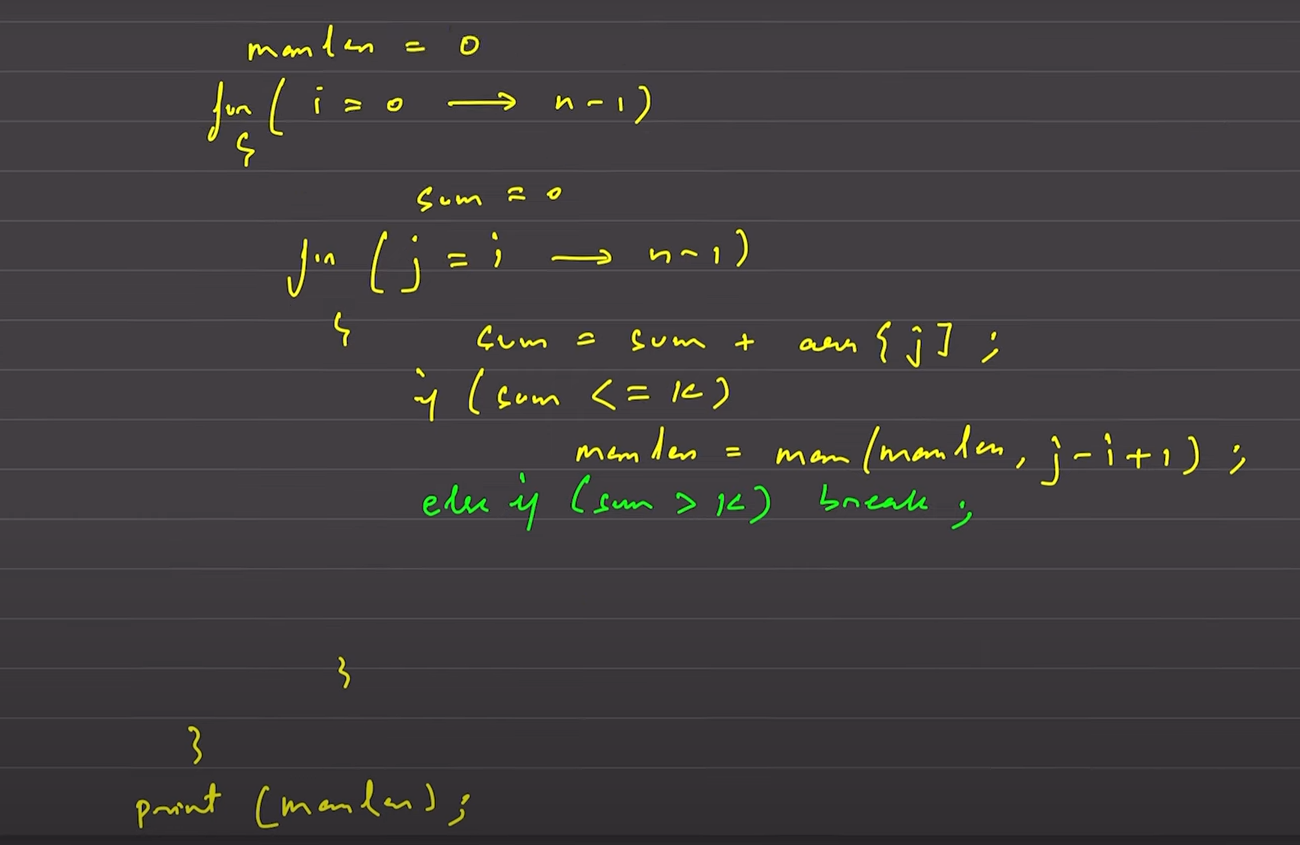 maxlen = 0
for ( i = 0 → n-1)
{
sum = 0
for ( j = i → n-1)
{
sum = sum + arr [j] ;
if (sum <= k)
maxlen = max (maxlen, j-i+1) ;
else if (sum > k) break ;
}
}
print (maxlen) ;